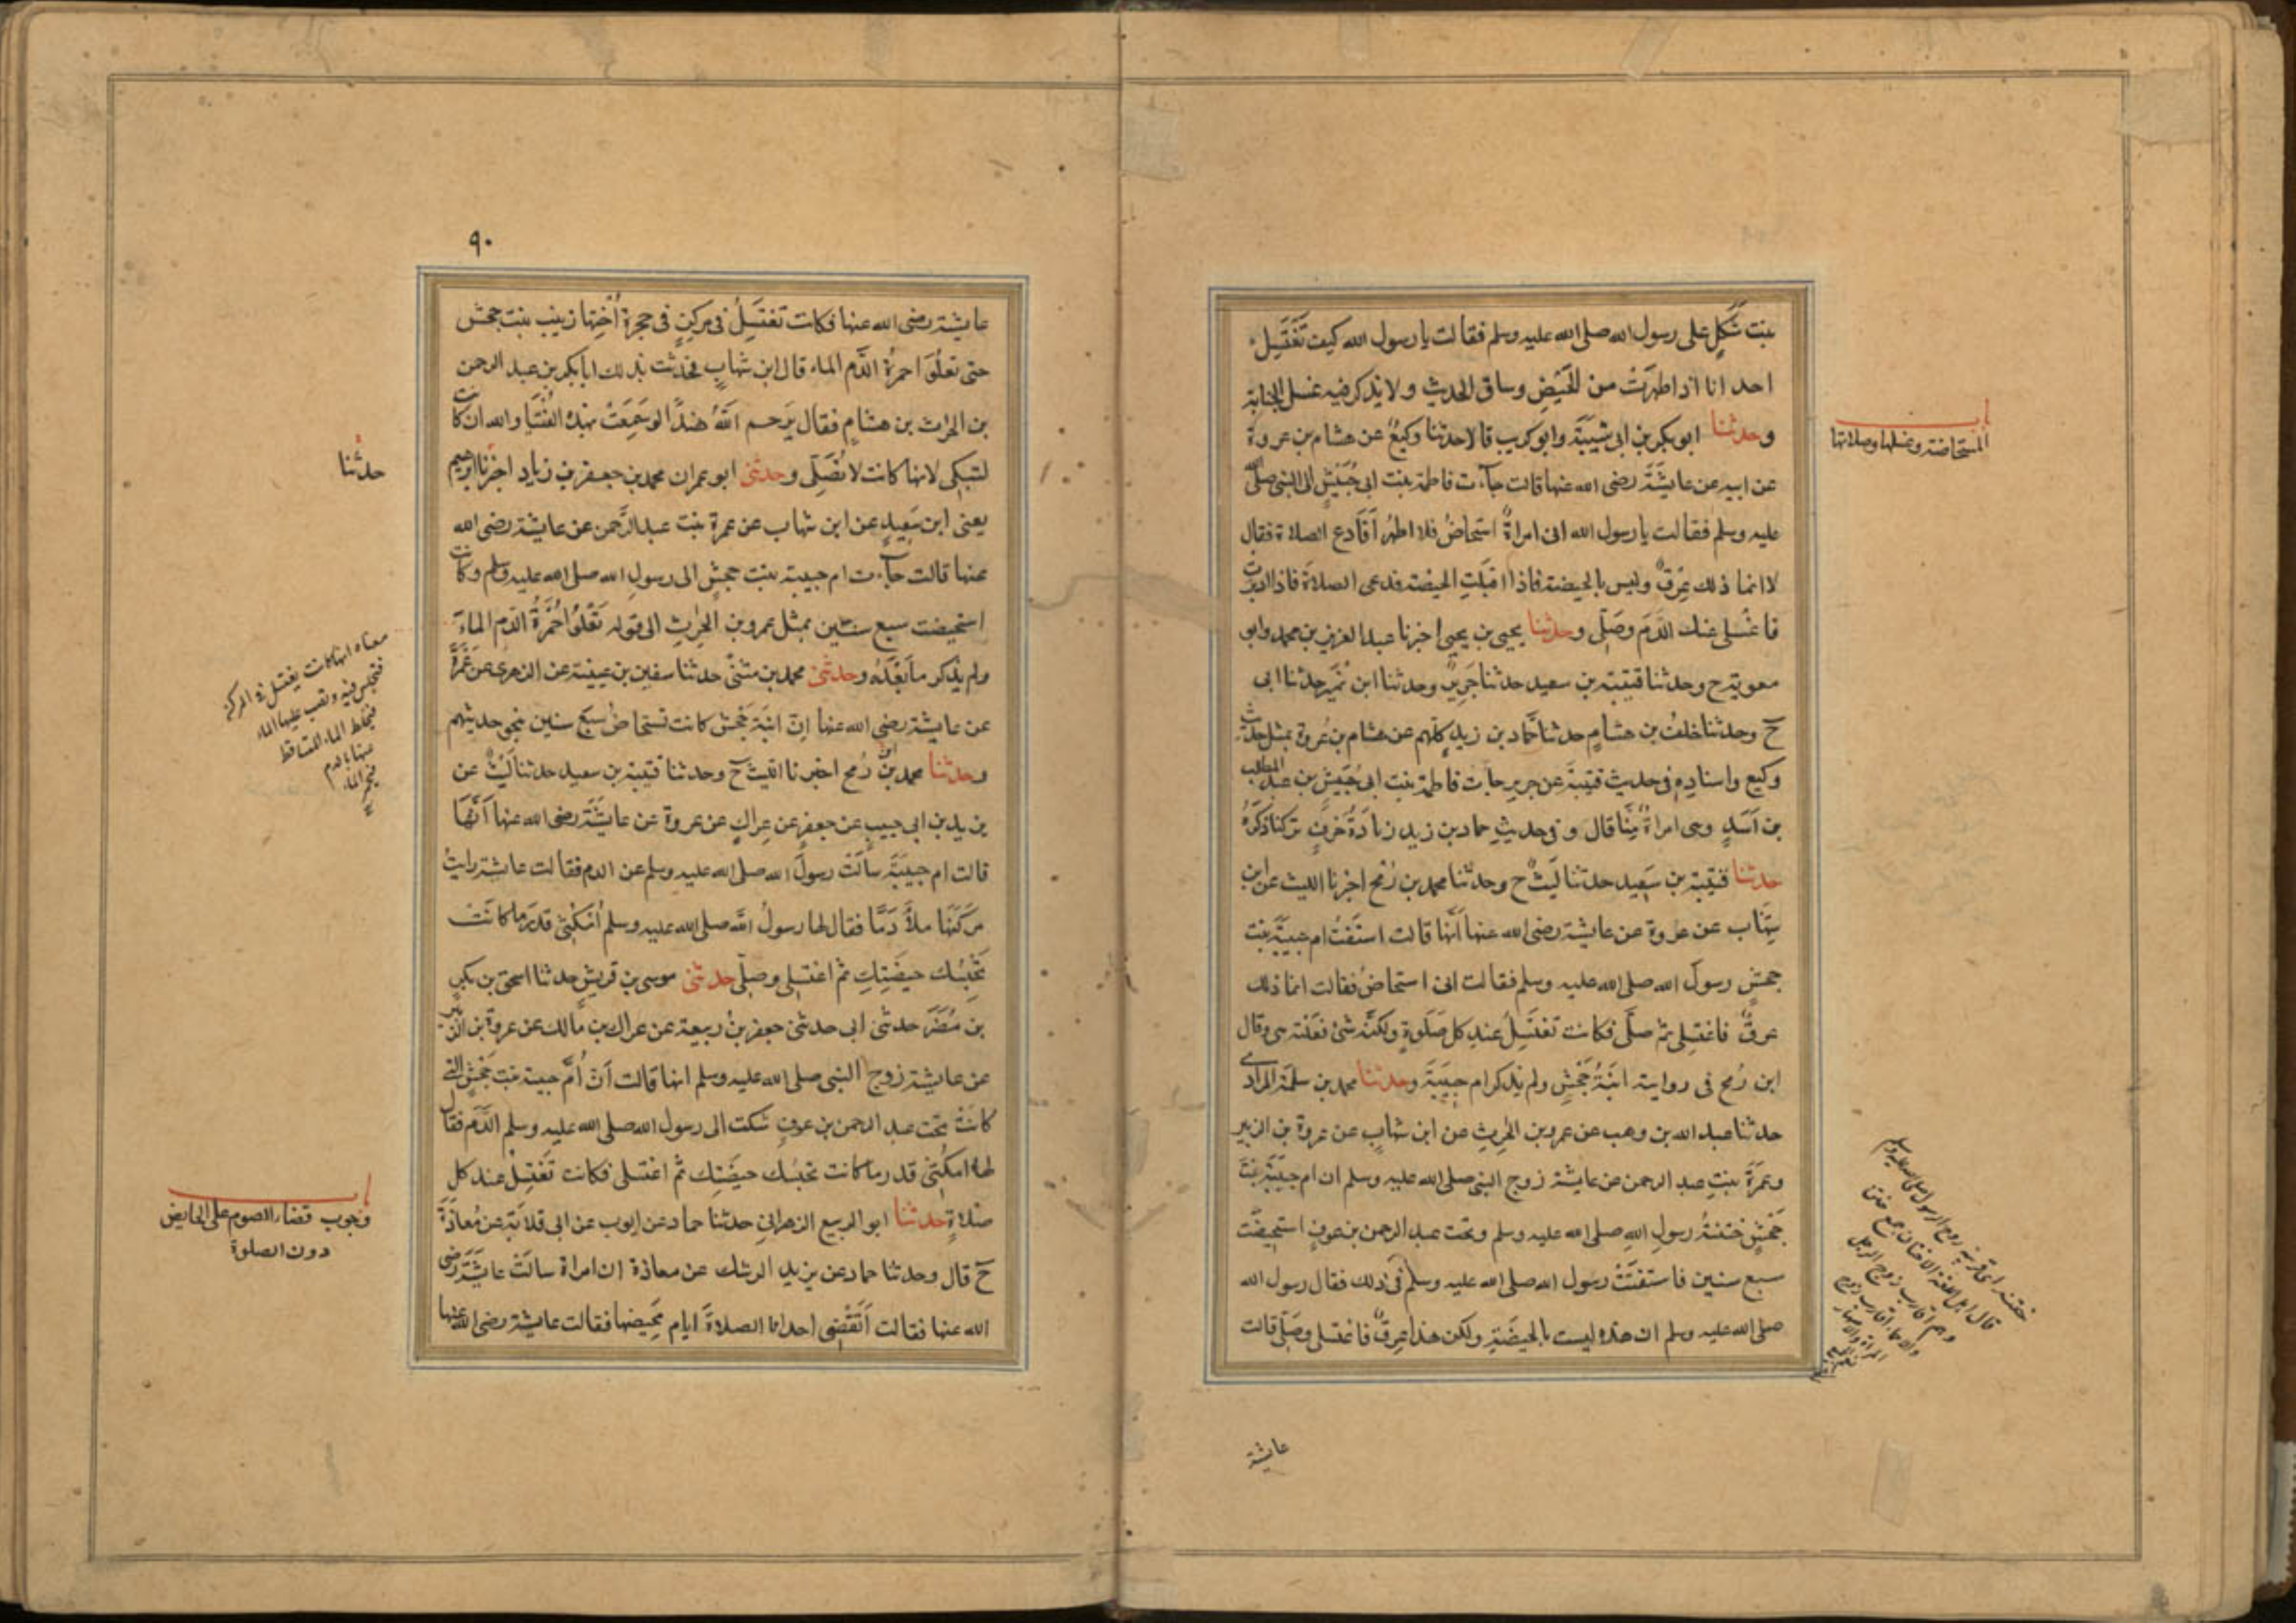 بنت شَكَلٍ على رسول الله صلى الله عليه وسلم فقالت يا رسول الله كيف تَغتَسِلُ
احدانا اذا طهرَتْ من المحَيْضِ وساق الحديث ولا يذكر فيه غسل الجنابة
وحدثنا ابو بكر بن ابى شَيبَةَ وابو كريب قالا حدثنا وكيعٌ عن هشام بن عروة
عن ابيه عن عايشَةَ رضى الله عنها قالت جآءت فاطمة بنت ابى حُبَيْشٍ الى النبى صلى الله
عليه وسلم فقالت يا رسول الله انى امراةٌ استحاضُ فلا اطهُر أفَادع الصلاة فقال
لا انما ذلك عِرْقٌ وليس بالحيضة فاذا اقبَلَتِ الحيضة فدعى الصلاة فاذا ادبرت
فاغْسلى عنك الدَّمَ وصَلّى وحدثنا يحيى بن يحيى اخبرنا عبد العزيز بن محمد وابو
معوية ح وحدثنا قتيبة بن سعيد حدثنا جَرِيرٌ وحدثنا ابن نُمَيرحدثنا ابى
ح وحدثنا خلفُ بن هشامٍ حدثنا حَمّاد بن زيدٍ كلّهم عن هشام بن عُروة بمثل حديث
وكيع واسنادِهِ فى حديث قتيبَةَ عن جرير جاءت فاطمة بنت ابى حُبَيْشِ بن عبد المطلب
بن اَسَدٍ وهى امراةٌ مِنَّا قال وفى حديثِ حماد بن زيد زيادَةُ حَرفٍ تركنا ذكرَهُ
حدثنا قتيبة بن سَعِيد حدثنا لَيثٌ ح وحدثنا محمد بن رُمْحٍ اخبرنا الليث عن ابن
شِهَاب عن عروة عن عايشة رضى الله عنها أنَّها قالت استَفْتَتْ ام حبيبَةَ بنت
جحشٍ رسولَ الله صلى الله عليه وسلم فقالت انى استحاضُ فقالت انما ذلك
عرقٌ فاغتِسِلى ثمّ صلّى فكانت تغتَسِلُ عند كل صَلَوةٍ ولكنّه شئٌ فعَلَته هى وقال
ابن رُمحٍ فى رواية ابنَةُ جَحْشٍ ولم يذكر ام حبِيبَةَ وحدثنا محمد بن سلَمَة المرادى
حدثنا عبد الله بن وهب عن عمرو بن الحٰرِثِ عن ابن شهابٍ عن عروة بن الزبير
وعَمْرَةَ بنتِ عبد الرحمن عن عايشة زوج النبى صلى الله عليه وسلم ان ام حبيبَةَ بنت
جَحْشٍ خَتَنَةُ رسولِ اللهِ صلى الله عليه وسلم وتحت عبد الرحمن بن عوفٍ استحيضَت
سبع سنين فاستفتَتْ رسول الله صلى الله عليه وسلم فى ذلك فقال رسول الله
صلى الله عليه وسلم ان هذه ليست بالحيضَةِ ولكن هذا عِرقٌ فاغتسلى وصَلّى قالت
باب
المستحاضة وغسلها وصلاتها
ختنة اى قريبة زوج الرسول صلى الله عليه وسلم
قال اهل اللغة الاختان جمع ختن
وهم اقارب زوج الرجل
والاحماء اقارب زوج
المراة والاصهار
عايشة
٩٠
عايشة رضى الله عنها فكانت تغتَسِلُ فى مِركَنٍ فى حجرةِ اُخْتِها زينب بنت جحش
حتى تعلُوَا حمرةُ الدَّم الماء قال ابن شهابٍ فحدثت بذلك ابا بكر بن عبد الرحمن
بن الحٰرث بن هشامٍ فقال يَرحم اللهُ هندًا لو سَمِعَتْ بهذه الفُتيَا والله ان كانت
لتبكى لانها كانت لا تُصَلِّى وحدثنى ابو عمران محمد بن جعفر بن زياد اخبرنا ابرهيم
يعنى ابن سَعِيدٍ عن ابن شهاب عن عمرة بنت عبد الرَّحمن عن عايشة رضى الله
عنها قالت جآءت ام حبيبة بنت جحشٍ الى رسولِ الله صلى الله عليه وسلم وكانت
استحيضت سبع سنين بمثل عمرو بن الحٰرِثِ الى قوله تَعْلُوَا حُمْرَةُ الدّمِ الماءَ
ولم يذكر ما بَعْدَهُ وحدثنى محمد بن مثنّى حدثنا سفين بن عيينة عن الزهرى عن عَمْرَةَ
عن عايشة رضى الله عنها انّ ابنَةَ جَحْش كانت تستحاضُ سبَع سنين بنحو حديثهم
وحدثنا محمد بن رُمح اخبرنا الليث ح وحدثنا قتيبة بن سعيد حدثنا لَيْثٌ عن
يزيد بن ابى حبيب عن جعفرٍ عن عِراكٍ عن عروة عن عايشَةَ رضى الله عنها اَنَّهَا
قالت ام حبيبَةَ سألَتْ رسولَ الله صلى الله عليه وسلم عن الدم فقالت عايشة رايتُ
مركَنَهَا ملأَ دَمًا فقال لها رسولُ الله صلى الله عليه وسلم اُمكُثِى قدرَ ما كانَتْ
تَحْبِسُك حيضَتِكِ ثم اغتسِلى وصلّى حدثنى موسى بن قريش حدثنا اسحق بن بكر
بن مُضَرَ حدثنى ابى حدثنى جعفر بنُ ربيعة عن عراك بن مالك عن عروة بن الزبير
عن عايشة زوج النبى صلى الله عليه وسلم انها قالت اَنّ اُمّ حبيبة بنت جَحْشٍ التى
كانَتْ تحت عبد الرحمن بن عوفٍ شكت الى رسول الله صلى الله عليه وسلم الدَّمَ فقال
لها امكُثِى قدر ما كانت تحبسُك حيضَتِك ثم اغتسلى فكانت تَغتسِلُ عند كل
صلاةٍ حدثنا ابو الربيع الزهرانى حدثنا حماد عن ايوب عن ابى قلابَةَ عن مُعاذَةَ
ح قال وحدثنا حماد عن يزيد الرشك عن معاذة ان امراة سالَتْ عايشَةَ رضى
الله عنها فقالت اَتَقْضِى احدانا الصلاةَ ايام مَحيضها فقالت عايشة رضى الله عنها
حدثنا
معناه انها كانت يغتسل فى المركن
فتجلس فيه وتصب عليها الماء
فيختلط الماء المتساقط
عنها بالدم
فيحمر الماء
باب
وجوب قضاء الصوم على الحايض
دون الصلوة